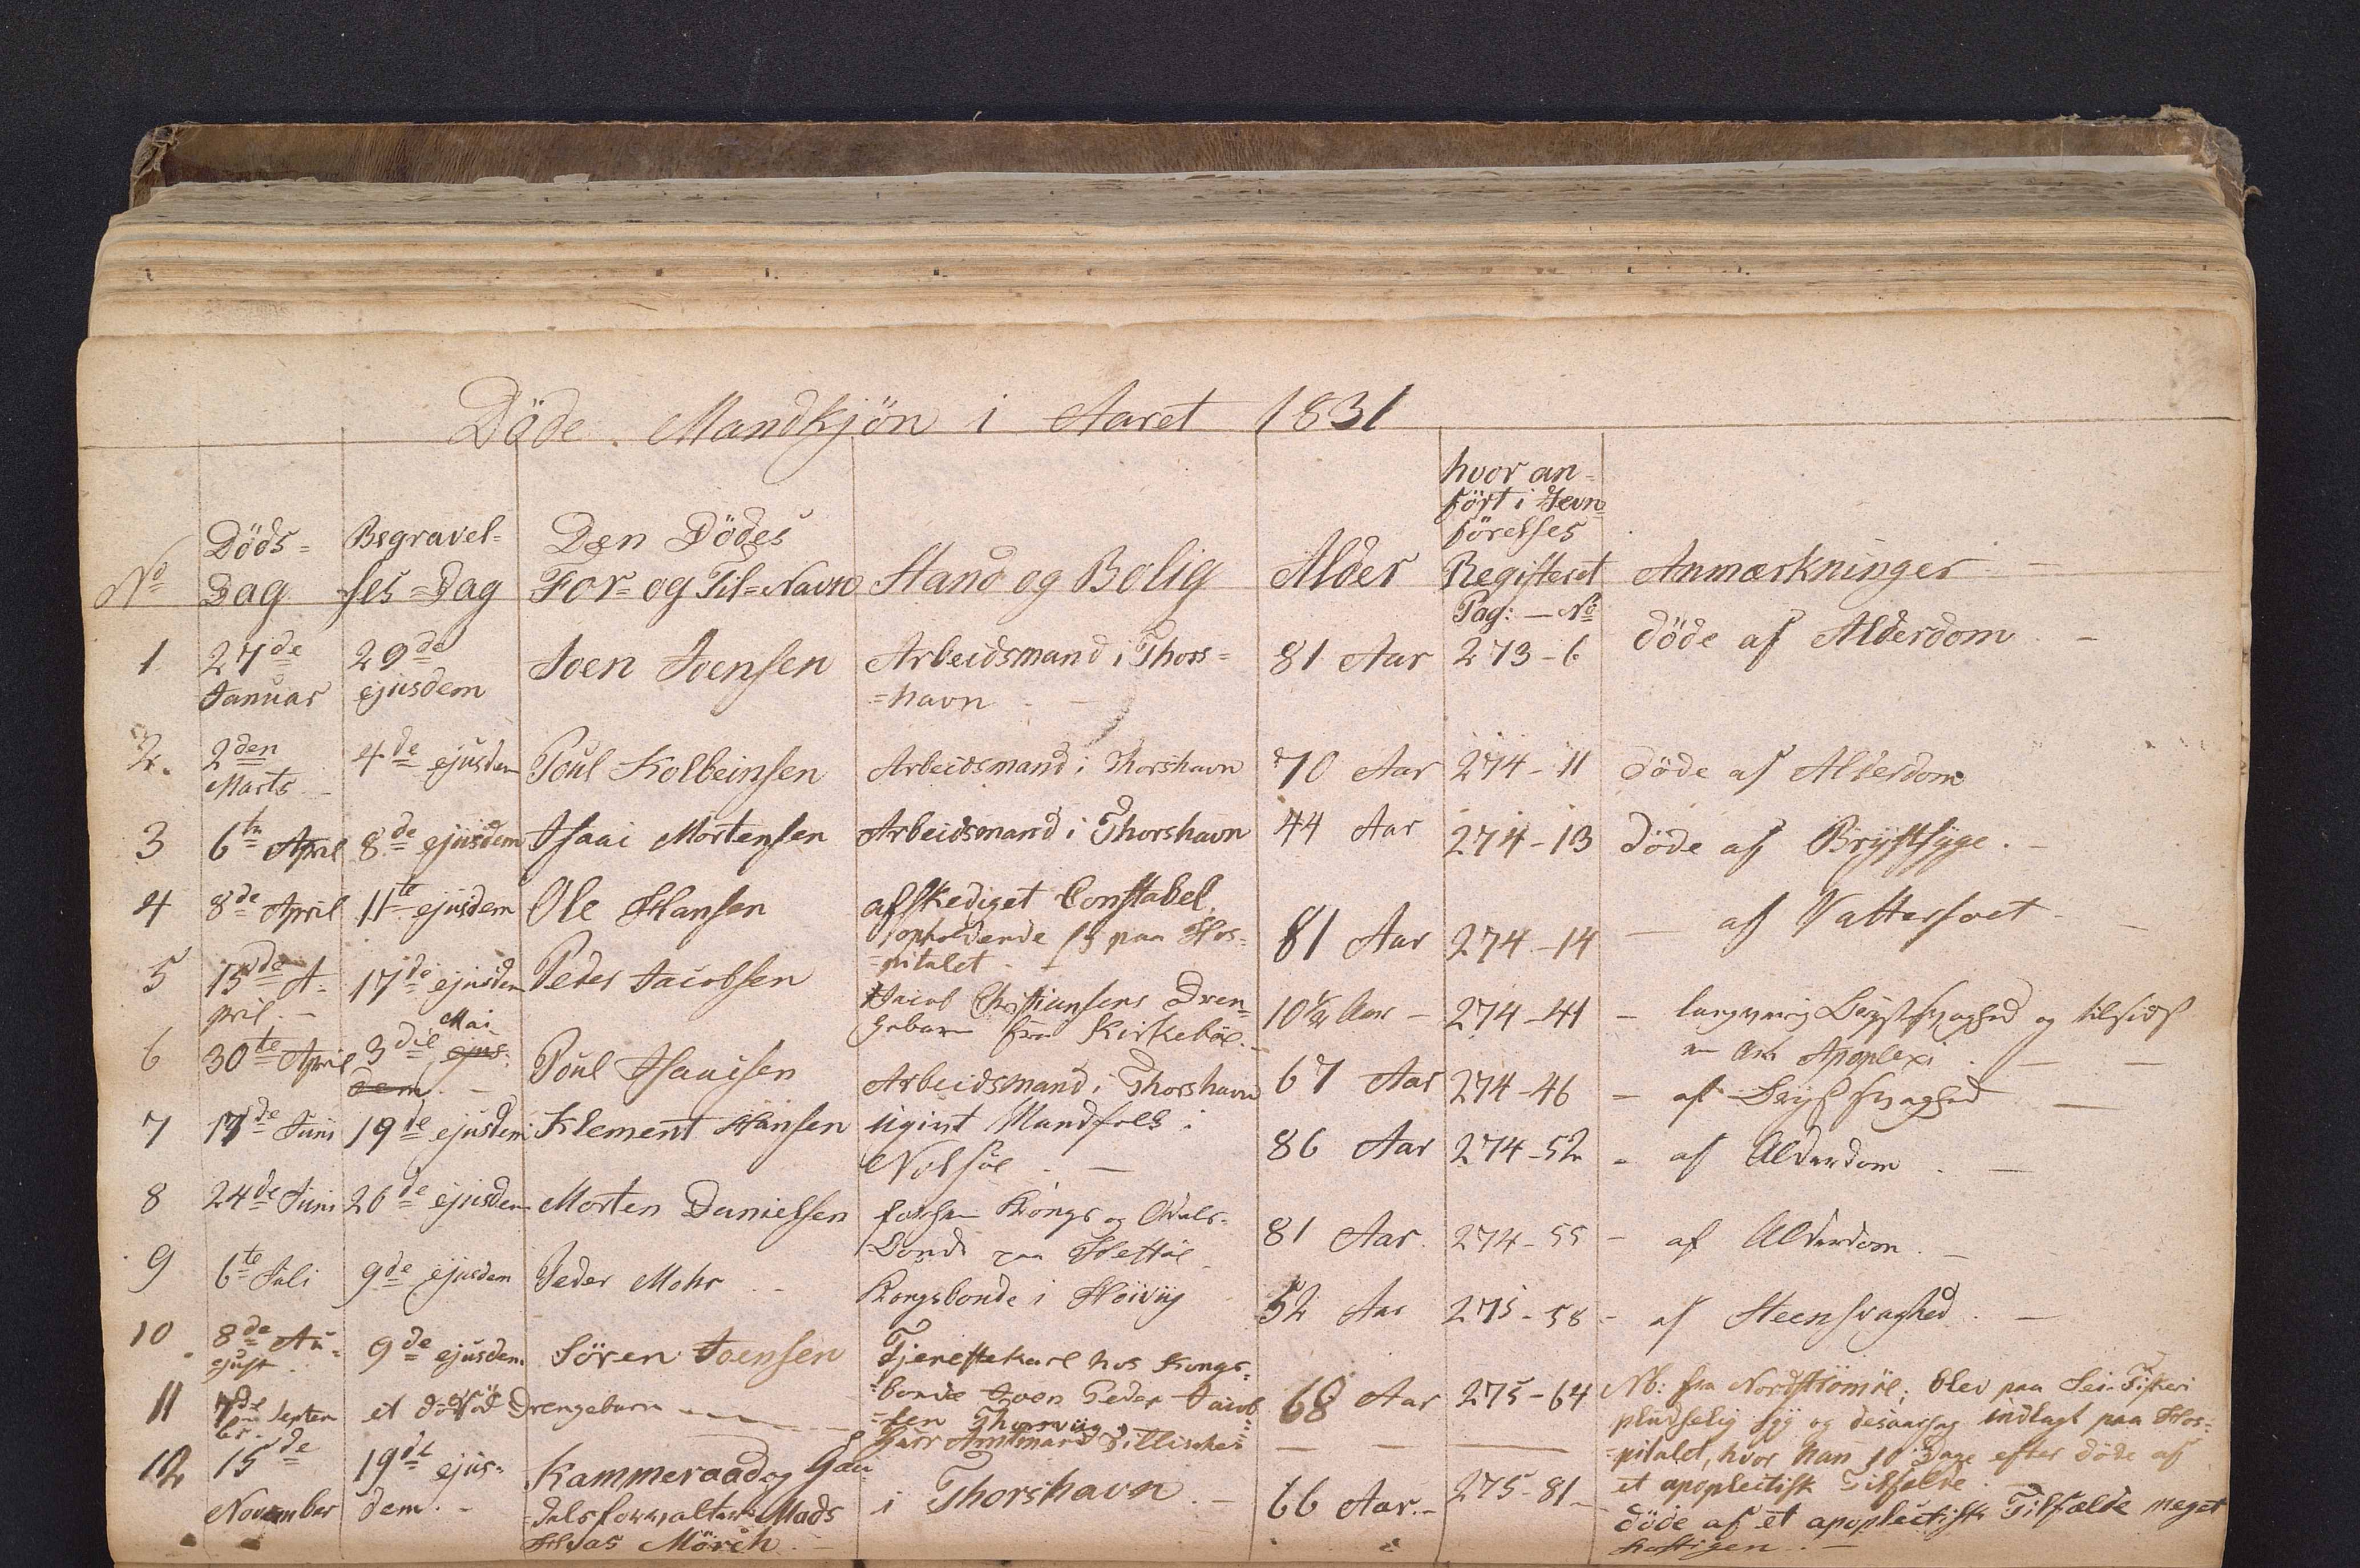 Döde Mandkjön i Aaret 1831
No
Döds=
Dag
Begravel=
ses=Dag
Den Dödes
For= og Til=Navn
Stand og Bolig
Alder
hvor an=
ført i Jevn=
førelses
Registeret
Pag: — No
Anmærkninger
1
27de
Januar
29de
ejusdem
Joen Joensen
Arbeidsmand i Thors=
=havn
81 Aar
273-6
döde af Alderdom
2.
2den
Marts
4de ejusdem
Poul Kolbeinsen
Arbeidsmand i Thorshavn
70 Aar
274-11
döde af Alderdom
3
6te April
8de ejusdem
Isaai Mortensen
Arbeidsmand i Thorshavn
44 Aar
274-13
döde af Brystsyge.
4
8de April
11te ejusdem
Ole Hansen
afskediget Constabel
opholdende sig paa Hos=
=pitalet
81 Aar
274-14
— af Vattersoet
5
15de A=
pril
17de ejusdem
Peder Jacobsen
Jacob Christiansens Dren=
gebarn fra Kirkeböe
10 Aar
274-41
- langvarig Brystsvaghed og tilsidst
Apoplexi
6
30te April
3die Mai ejus=
dem
Poul Isaaisen
Arbeidsmand i Thorshavn
67 Aar
274-46
- af Brystsvaghed
7
17de Juni
19de ejusdem
Klement Hansen
ugivt Mandfolk i
Nolsöe
86 Aar
274-52
- af Alderdom
8
24de Juni
26de ejusdem
Morten Danielsen
forhen Kongs og Odels=
Bonde paa Hestöe
81 Aar
274-55
- af Alderdom
9
6te Juli
9de ejusdem
Peder Mohr
Kongsbonde i Hoiviig
52 Aar
275-58
- af Steensvaghed
10
8de Au=
gust
9de ejusdem
Sören Joensen
Tjenestekarl hos Kongs=
=bonde Joen Peder Jacob
=sen Thorsviig
68 Aar
275-64
Nb: fra Nordströmöe; blev paa Sei-Fiskeri
pludselig syg og desaarsag indlagt paa Hos=
=pitalet, hvor han 10 Dage efter döde af
et apoplectisk Tilfælde
11
7de Septem
br.
et dödfød Drengebarn
Herr Amtmand Tillisches
12
15de
November
19de ejus=
dem
Kammeraad og Han
=delsforvalter Mads
Hvas Mörch
i Thorshavn
66 Aar
275-81
döde af et apoplectisk Tilfælde meget
hastigen